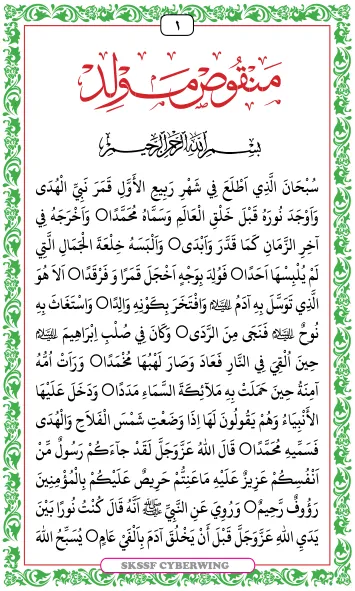 ١
مَنْقُوصْ مَوْلِدْ
بِسْمِ اللهِ الرَّحْمٰنِ الرَّحِيْمِ
سُبْحَانَ الَّذِي اَطْلَعَ فِي شَهْرِ رَبِيعِ الْأَوَّلِ قَمَرَ نَبِيِّ الْهُدَى
وَاَوْجَدَ نُورَهُ قَبْلَ خَلْقِ الْعَالَمِ وَسَمَّاهُ مُحَمَّدًا○ وَاَخْرَجَهُ فِي
آخِرِ الزَّمَانِ كَمَا قَدَّرَ وَاَبْدَى○ وَاَلْبَسَهُ خِلْعَةَ الْجَمَالِ الَّتِي
لَمْ يُلْبِسْهَا اَحَدًا○ فَوُلِدَ بِوَجْهٍ اَخْجَلَ قَمَرًا وَ فَرْقَدًا○ اَلاَ هُوَ
الَّذِي تَوَسَّلَ بِهِ آدَمُ ﷺ وَافْتَخَرَ بِكَوْنِهِ وَالِدًا○ وَاسْتَغَاثَ بِهِ
نُوحٌ ﷺ فَنَجَى مِنَ الرَّدَى○ وَكَانَ فِي صُلْبِ اِبْرَاهِيمَ ﷺ
حِينَ اُلْقِيَ فِي النَّارِ فَعَادَ وَصَارَ لَهَبُهَا مُخْمَدًا○ وَرَاَتْ اُمُّهُ
آمِنَةُ حِينَ حَمَلَتْ بِهِ مَلاَئِكَةَ السَّمَاءِ مَدَدًا○ وَدَخَلَ عَلَيْهَا
الْأَنْبِيَاءُ وَهُمْ يَقُولُونَ لَهَا اِذَا وَضَعْتِ شَمْسَ الْفَلاَحِ وَالْهُدَى
فَسَمِّيهِ مُحَمَّدًا○ قَالَ اللهُ عَزَّوَجَلَّ لَقَدْ جَآءَكُمْ رَسُولٌ مِّنْ
اَنْفُسِكُمْ عَزِيزٌ عَلَيْهِ مَاعَنِتُّمْ حَرِيصٌ عَلَيْكُمْ بِالْمُؤْمِنِينَ
رَؤُوفٌ رَّحِيمٌ○ وَرُوِيَ عَنِ النَّبِيِّ ﷺ اَنَّهُ قَالَ كُنْتُ نُورًا بَيْنَ
يَدَيِ اللهِ عَزَّوَجَلَّ قَبْلَ أَنْ يَخْلُقَ آدَمَ بِاَلْفَيْ عَامٍ○ يُسَبِّحُ اللهَ
SKSSF CYBERWING